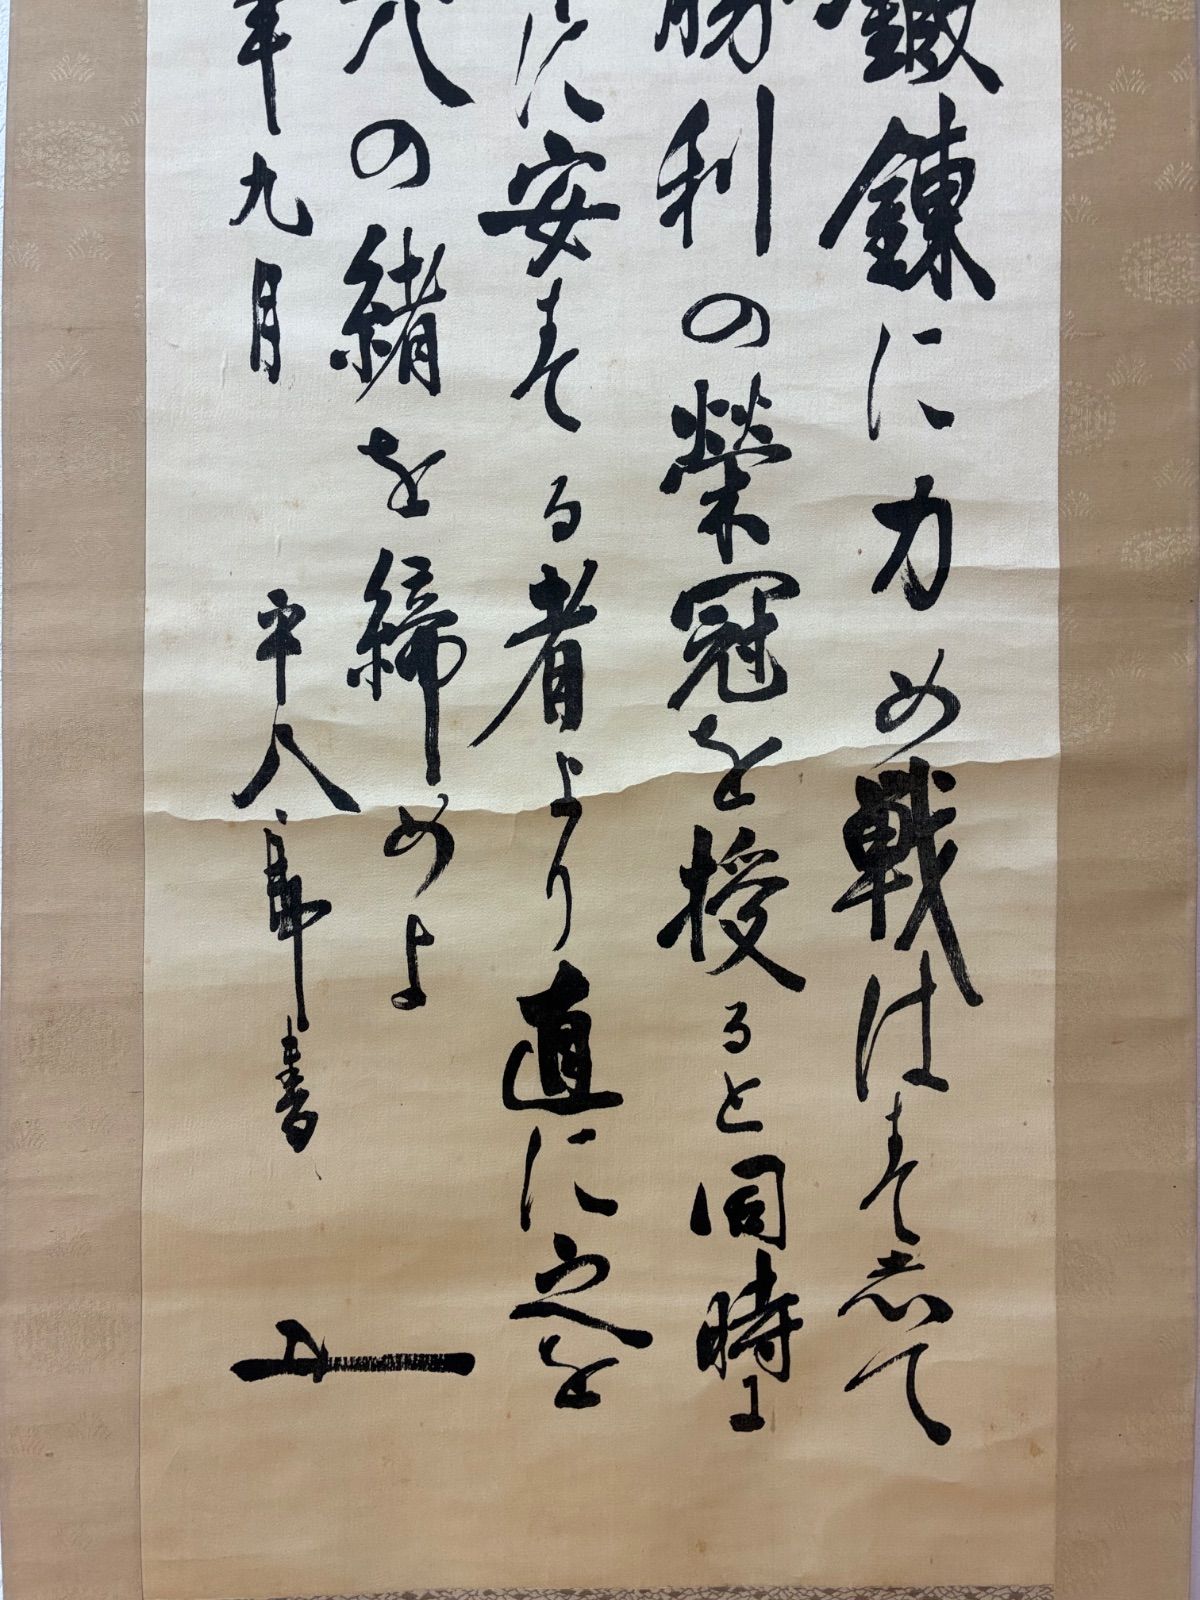 鍛錬に力め戦はすして
勝利の榮冠を授ると同時に
に安する者より直に之を
の緒を締めよ
年九月 平八郎書